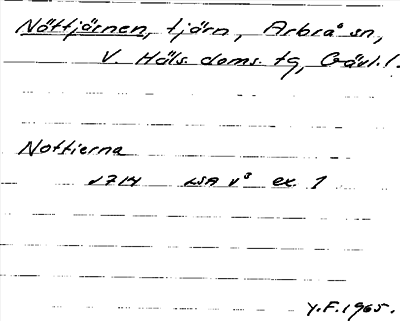 Nöttjärnen, tjärn, Arbrå sn,
V. Häls. doms. tg, Gävl. l.
Nottierna
1714 LSA V³ ex. 1
Y.F. 1965.